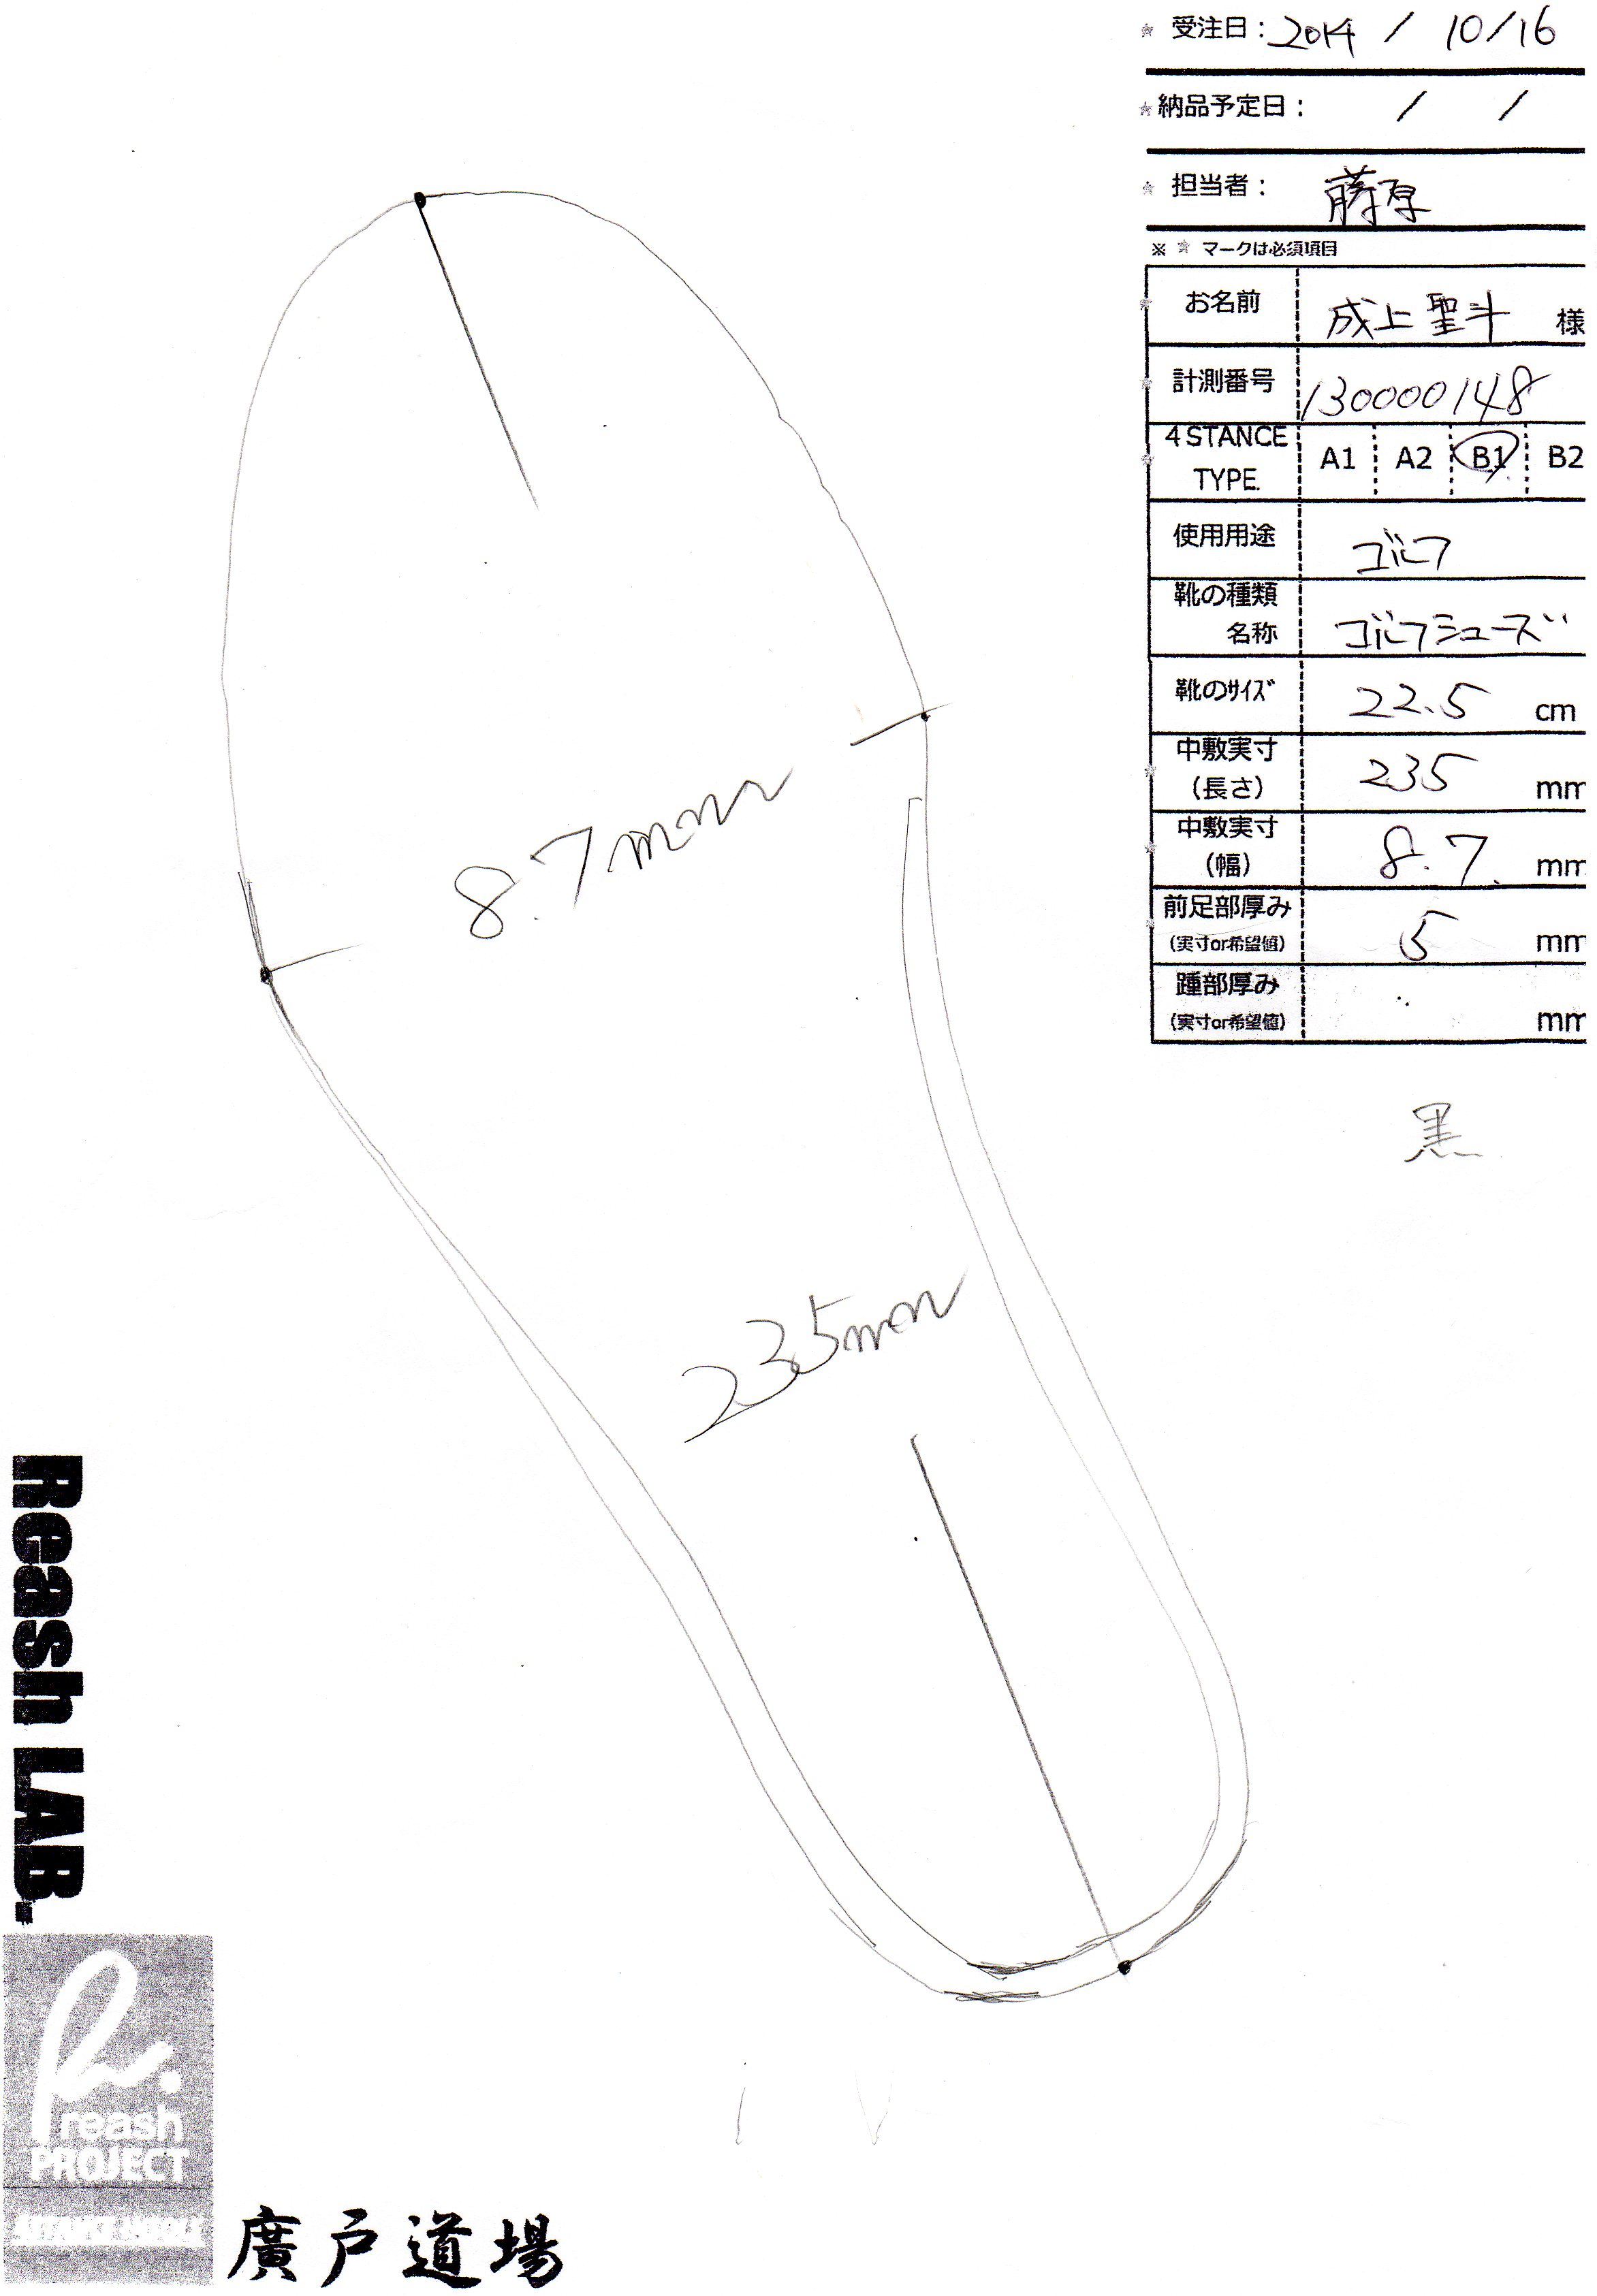 ★ 受注日：2014 / 10/16
★ 納品予定日： / /
★ 担当者： 藤原
※ ★ マークは必須項目
★ お名前 成上聖斗 様
★ 計測番号 130000148
★ 4STANCE TYPE. A1 A2 B1 B2
使用用途 ゴルフ
靴の種類
名称 ゴルフシューズ
靴のサイズ 22.5 cm
★ 中敷実寸
(長さ) 235 mm
★ 中敷実寸
(幅) 8.7. mm
★ 前足部厚み
(実寸or希望値) 5 mm
踵部厚み
(実寸or希望値) mm
黒
8.7mm
235mm
Reash LAB.
reash
PROJECT
廣戸道場